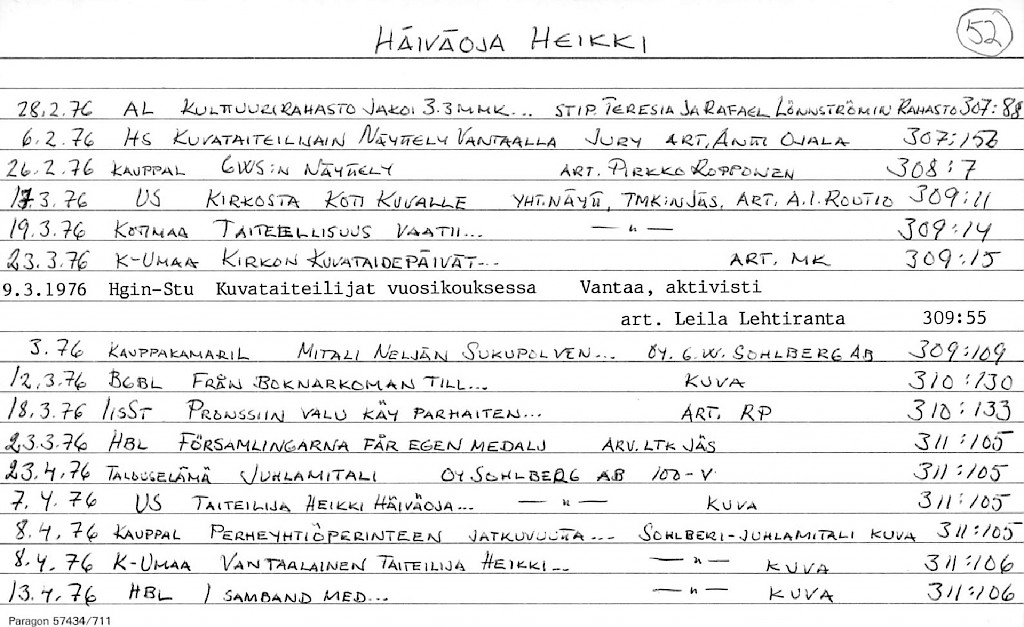 HÄIVÄOJA HEIKKI 52
28.2.76 AL KULTTUURIRAHASTO JAKOI 3.3 MMK... STIP. TERESIA JA RAFAEL LÖNNSTRÖMIN RAHASTO 307:88
6.2.76 HS KUVATAITEILIJAIN NÄYTTELY VANTAALLA JURY ART. ANTTI OJALA 307:156
26.2.76 KAUPPAL GWS:N NÄYTTELY ART. PIRKKO ROPPONEN 308:7
17.3.76 US KIRKOSTA KOTI KUVALLE YHT.NÄYTT, TMK:N JÄS, ART. A.I. ROUTIO 309:11
19.3.76 KOTIMAA TAITEELLISUUS VAATII... — " — 309:14
23.3.76 K-UMAA KIRKON KUVATAIDEPÄIVÄT... ART. MK 309:15
9.3.1976 Hgin-Stu Kuvataiteilijat vuosikouksessa Vantaa, aktivisti
art. Leila Lehtiranta 309:55
3.76 KAUPPAKAMARIL MITALI NELJÄN SUKUPOLVEN... OY. G.W. SOHLBERG AB 309:109
12.3.76 BGBL FRÅN BOKNARKOMAN TILL... KUVA 310:130
18.3.76 IISST PRONSSIIN VALU KÄY PARHAITEN... ART. RP 310:133
23.3.76 HBL FÖRSAMLINGARNA FÅR EGEN MEDALJ ARV.LTK JÄS 311:105
23.4.76 TALOUSELÄMÄ JUHLAMITALI OY SOHLBERG AB 100-V 311:105
7.4.76 US TAITEILIJA HEIKKI HÄIVÄOJA... — " — KUVA 311:105
8.4.76 KAUPPAL PERHEYHTIÖPERINTEEN JATKUVUUTTA... SOHLBERI-JUHLAMITALI KUVA 311:105
8.4.76 K-UMAA VANTAALAINEN TAITEILIJA HEIKKI... — " — KUVA 311:106
13.4.76 HBL I SAMBAND MED... — " — KUVA 311:106
Paragon 57434/711